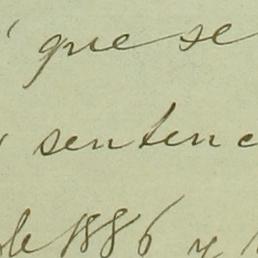 que se
sentenc
de 1886 y